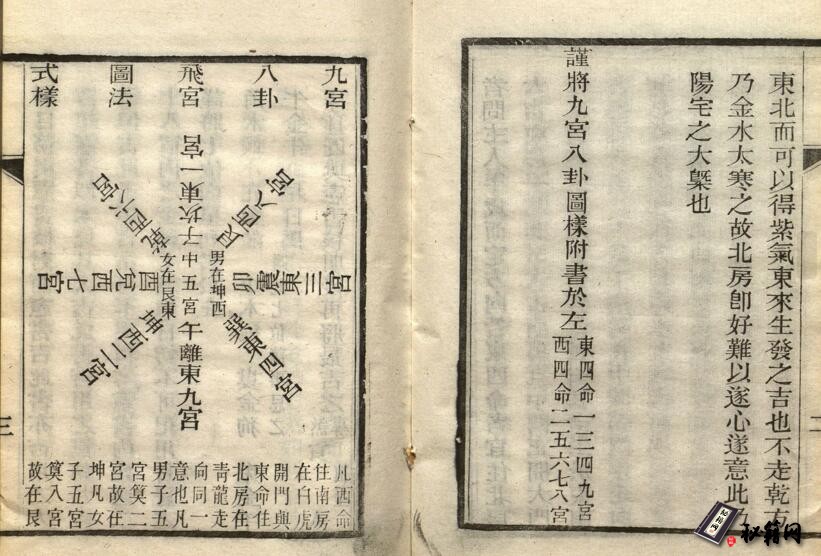 東北而可以得紫氣東來生發之吉也不走乾方
乃金水太寒之故北房卽好難以遂心遂意此乃
陽宅之大槩也
謹將九宮八卦圖樣附書於左
東四命一三四九宮
西四命二五六七八宮
二
九宮
八卦
飛宮
圖法
式樣
子坎東一宮
艮西八宮
卯震東三宮
巽東四宮
午離東九宮
坤西二宮
酉兌西七宮
乾西六宮
中五宮
男在坤西
女在艮東
凡西命
住南房
在白虎
開門與
東命住
北房在
靑龍走
向同一
意也凡
男子五
宮筭二
宮故在
坤凡女
子五宮
筭八宮
故在艮
三
秘籍网